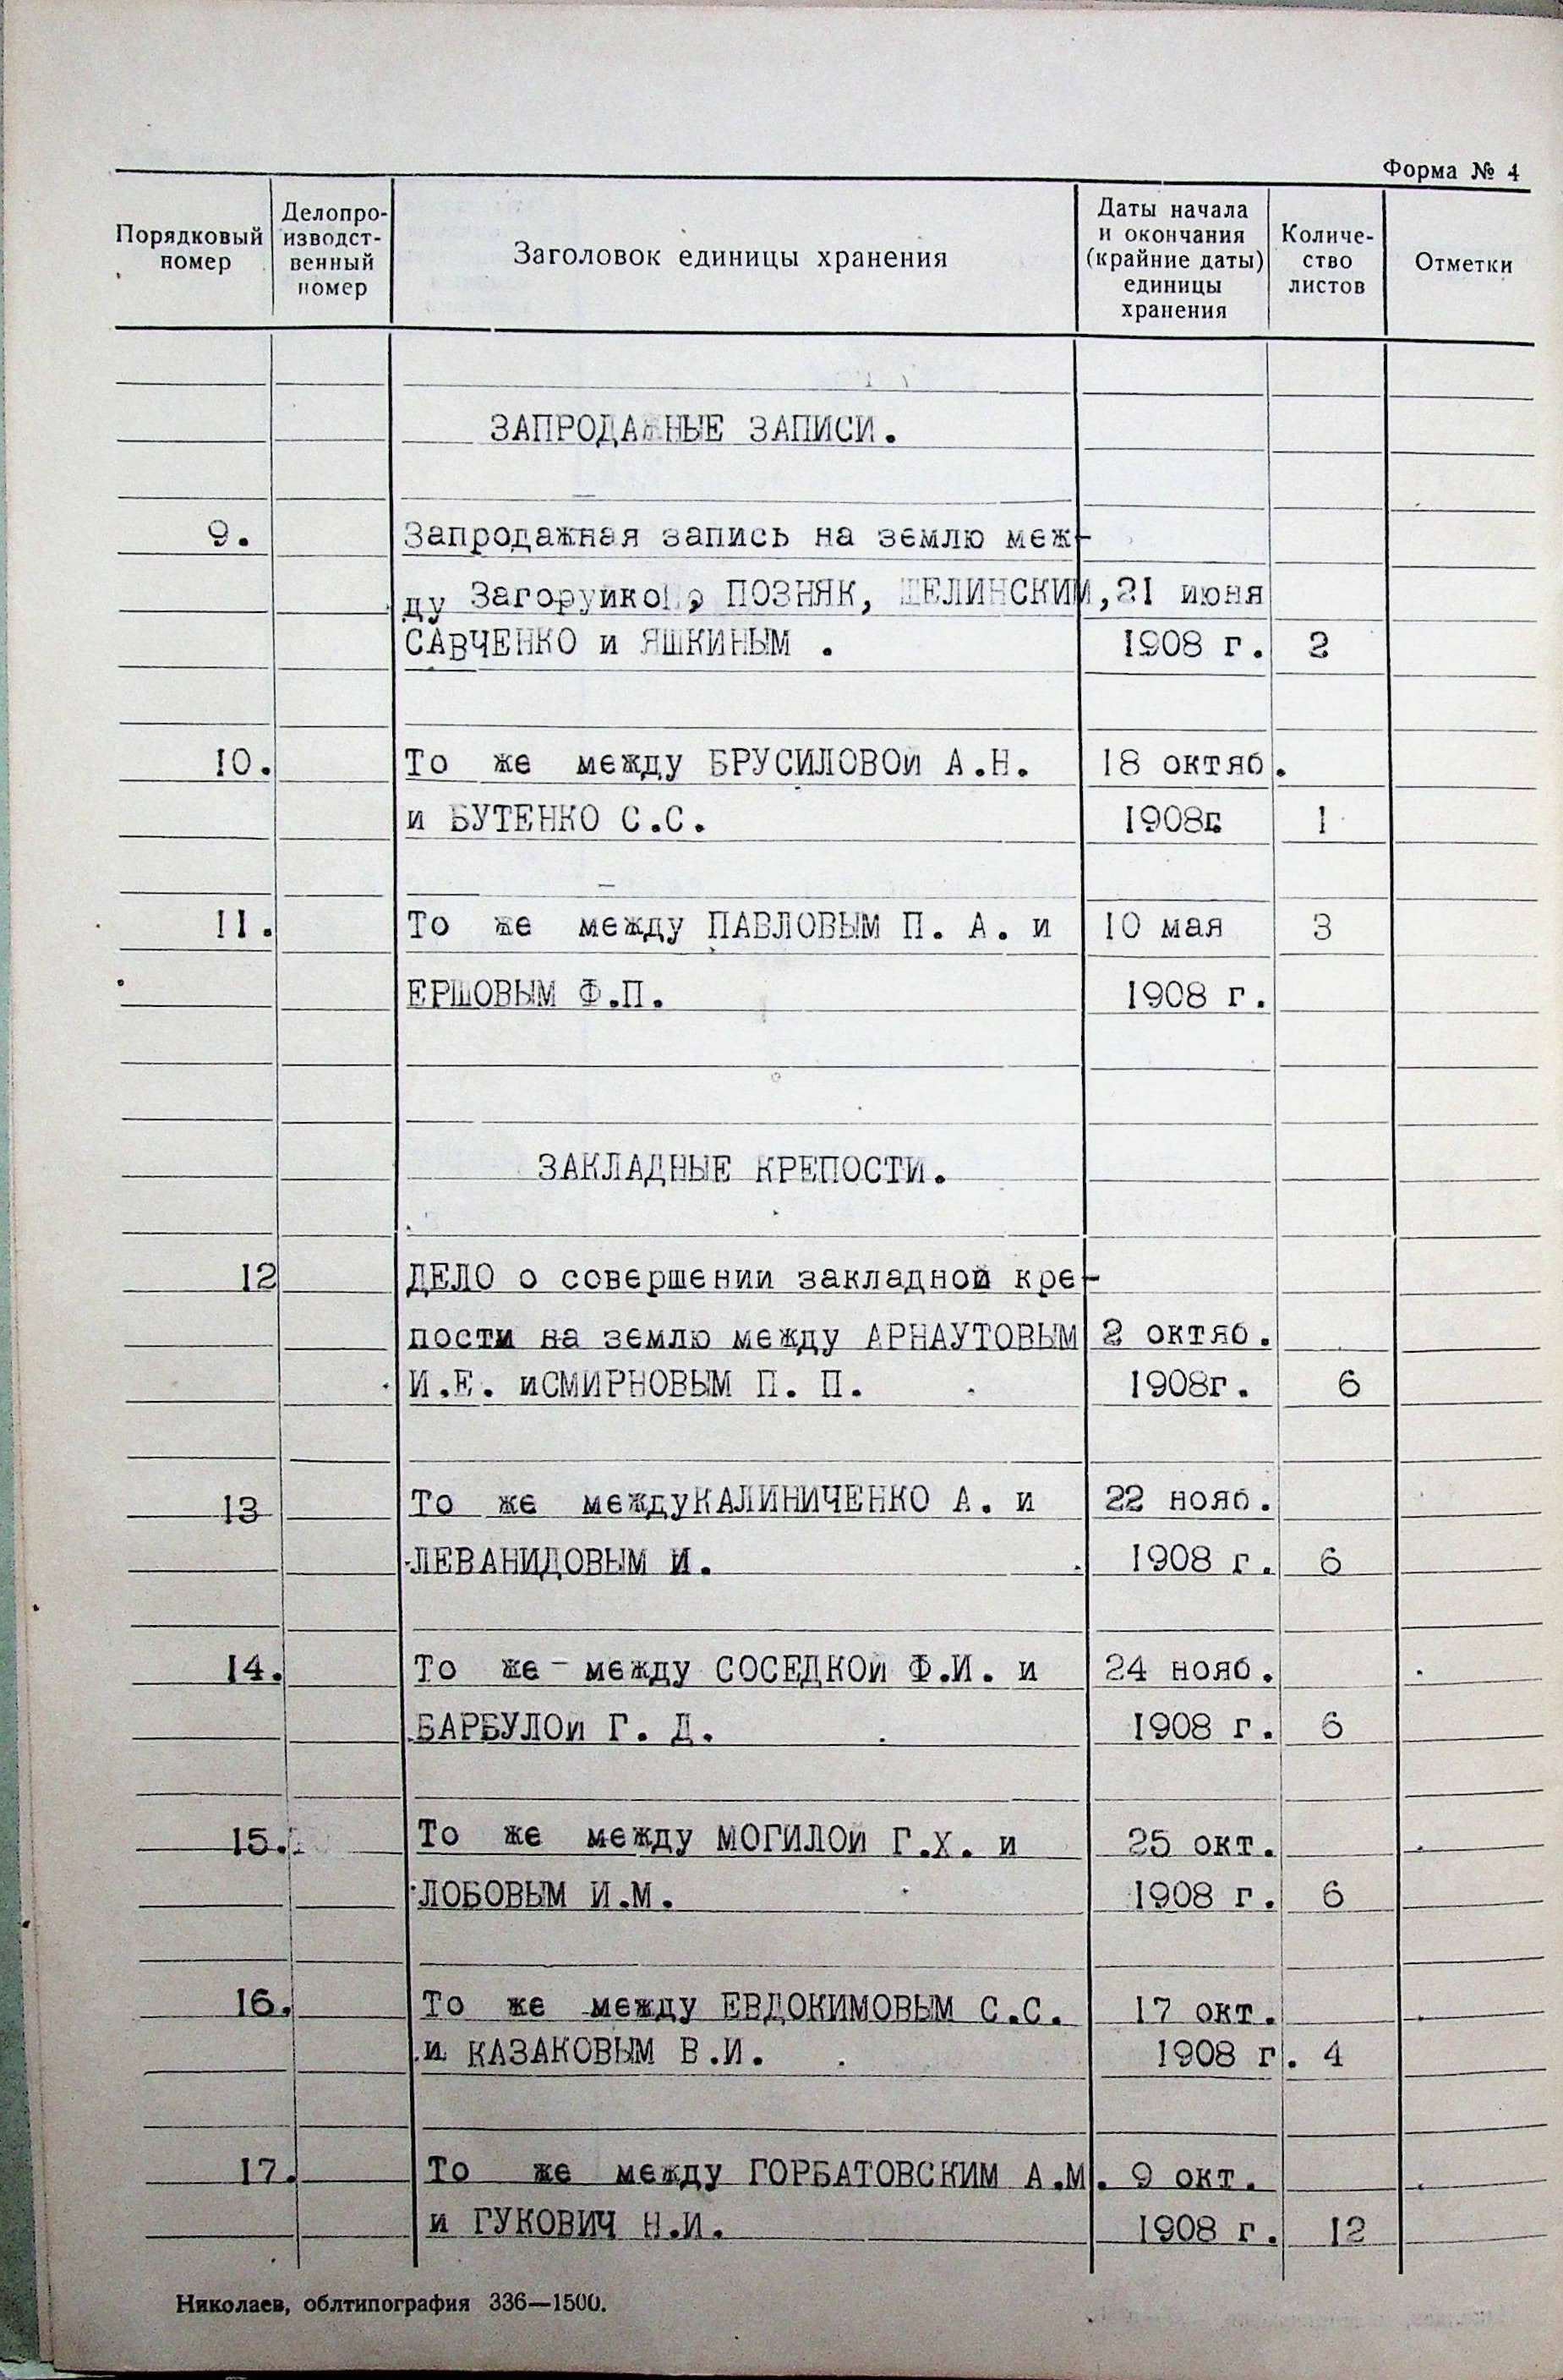 Форма № 4
Порядковый номер
Делопро-
изводст-
венный
номер
Заголовок единицы хранения
Даты начала
и окончания
(крайние даты)
единицы
хранения
Количе-
ство
листов
Отметки
ЗАПРОДАЖНЫЕ ЗАПИСИ.
9. Запродажная запись на землю меж-
ду Загоруико, ПОЗНЯК, ШЕЛИНСКИМ, 21 июня
САВЧЕНКО и ЯШКИНЫМ . 1908 г. 2
10. То же между БРУСИЛОВОИ А.Н. 18 октяб.
и БУТЕНКО С.С. 1908г. 1
11. То же между ПАВЛОВЫМ П. А. и 10 мая 3
ЕРШОВЫМ Ф.П. 1908 г.
ЗАКЛАДНЫЕ КРЕПОСТИ.
12 ДЕЛО о совершении закладнои кре-
пости на землю между АРНАУТОВЫМ 2 октяб.
И.Е. иСМИРНОВЫМ П. П. 1908г. 6
13 То же междуКАЛИНИЧЕНКО А. и 22 нояб.
ЛЕВАНИДОВЫМ И. 1908 г. 6
14. То же - между СОСЕДКОИ Ф.И. и 24 нояб.
БАРБУЛОИ Г. Д. 1908 г. 6
15. То же между МОГИЛОИ Г.Х. и 25 окт.
ЛОБОВЫМ И.М. 1908 г. 6
16. То же между ЕВДОКИМОВЫМ С.С. 17 окт.
и КАЗАКОВЫМ В.И. 1908 г. 4
17. То же между ГОРБАТОВСКИМ А.М. 9 окт.
и ГУКОВИЧ Н.И. 1908 г. 12
Николаев, облтипография 336—1500.